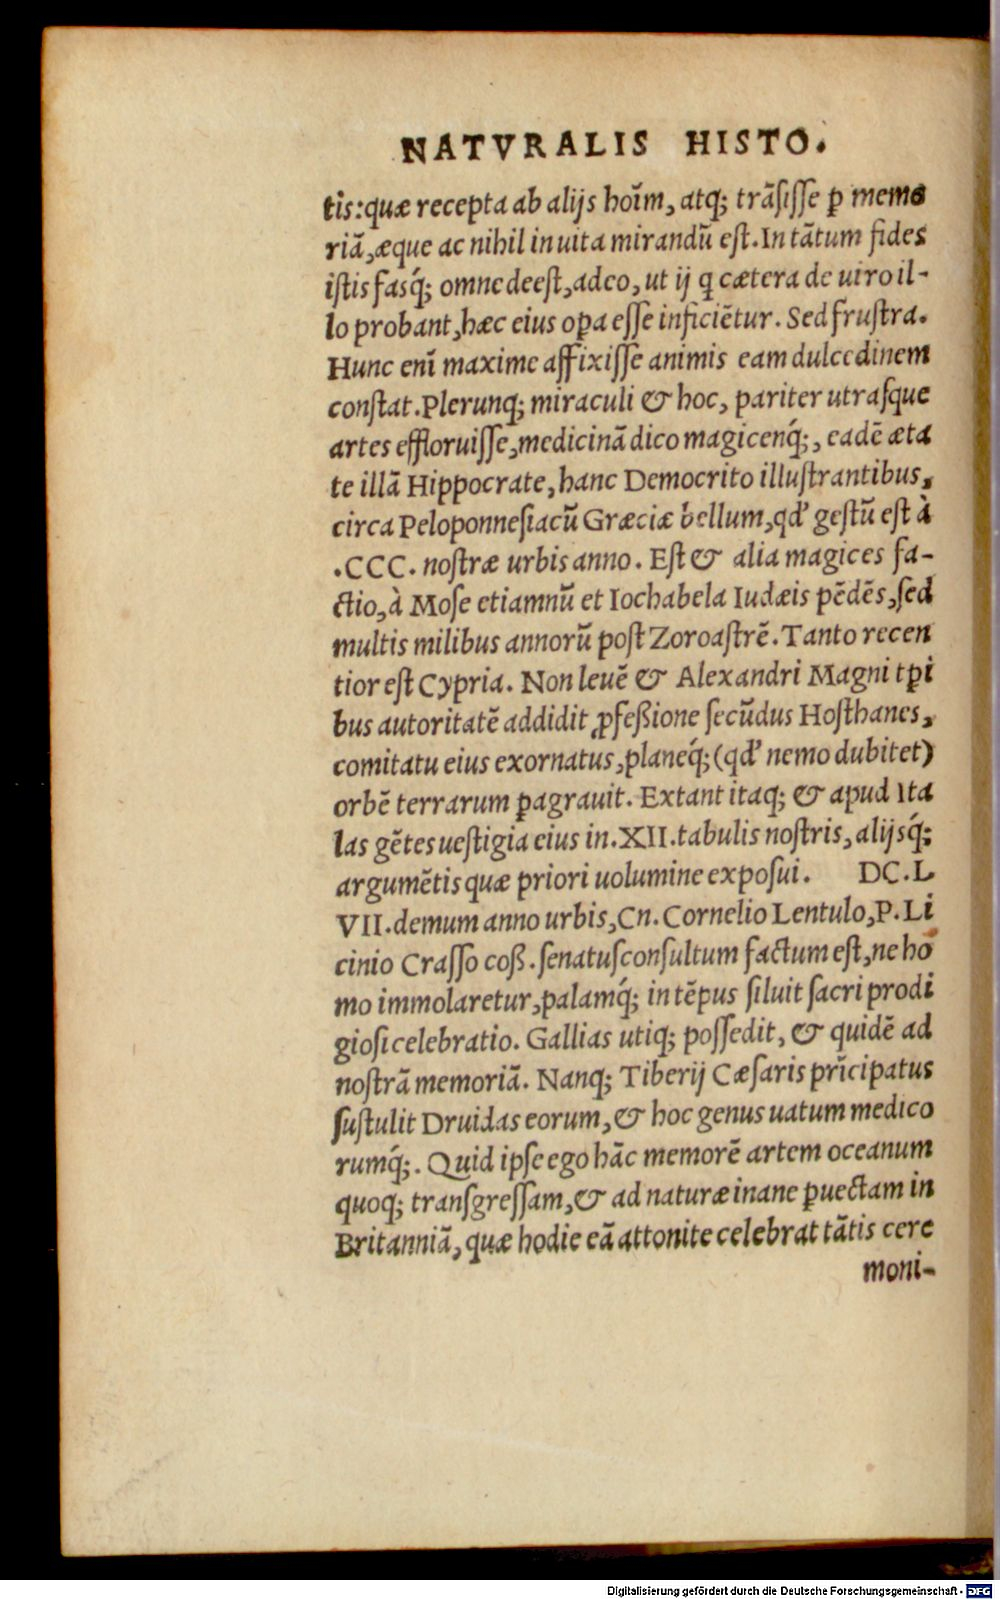 NATVRALIS HISTO.
tis: quæ recepta ab alijs hoīm, atq; trāsisse ꝑ memo
riā, æque ac nihil in uita mirandū est. In tātum fides
istis fasq́; omne deest, adeo, ut ij q̃ cætera de uiro il-
lo probant, hæc eius oꝑa esse inficiētur. Sed frustra.
Hunc enī maxime affixisse animis eam dulcedinem
constat. Plerunq; miraculi & hoc, pariter utrasque
artes effloruisse, medicinā dico magicenq́;, eadē æta
te illā Hippocrate, hanc Democrito illustrantibus,
circa Peloponnesiacū Græciæ bellum, qd' gestū est à
.CCC. nostræ urbis anno. Est & alia magices fa-
ctio, à Mose etiamnū et Iochabela Iudæis pēdēs, sed
multis milibus annorū post Zoroastrē. Tanto recen
tior est Cypria. Non leuē & Alexandri Magni tꝑi
bus autoritatē addidit ꝓfeßione secūdus Hosthanes,
comitatu eius exornatus, planeq́; (qd' nemo dubitet)
orbē terrarum ꝑagrauit. Extant itaq; & apud Ita
las gētes uestigia eius in .XII. tabulis nostris, alijsq́;
argumētis quæ priori uolumine exposui. DC.L
VII. demum anno urbis, Cn. Cornelio Lentulo, P. Li
cinio Crasso coß. senatusconsultum factum est, ne ho
mo immolaretur, palamq́; in tēpus siluit sacri prodi
giosi celebratio. Gallias utiq; possedit, & quidē ad
nostrā memoriā. Nanq; Tiberij Cæsaris prīcipatus
sustulit Druidas eorum, & hoc genus uatum medico
rumq́;. Quid ipse ego hāc memorē artem oceanum
quoq; transgressam, & ad naturæ inane ꝑuectam in
Britanniā, quæ hodie eā attonite celebrat tātis cere
moni-
Digitalisierung gefördert durch die Deutsche Forschungsgemeinschaft - DFG